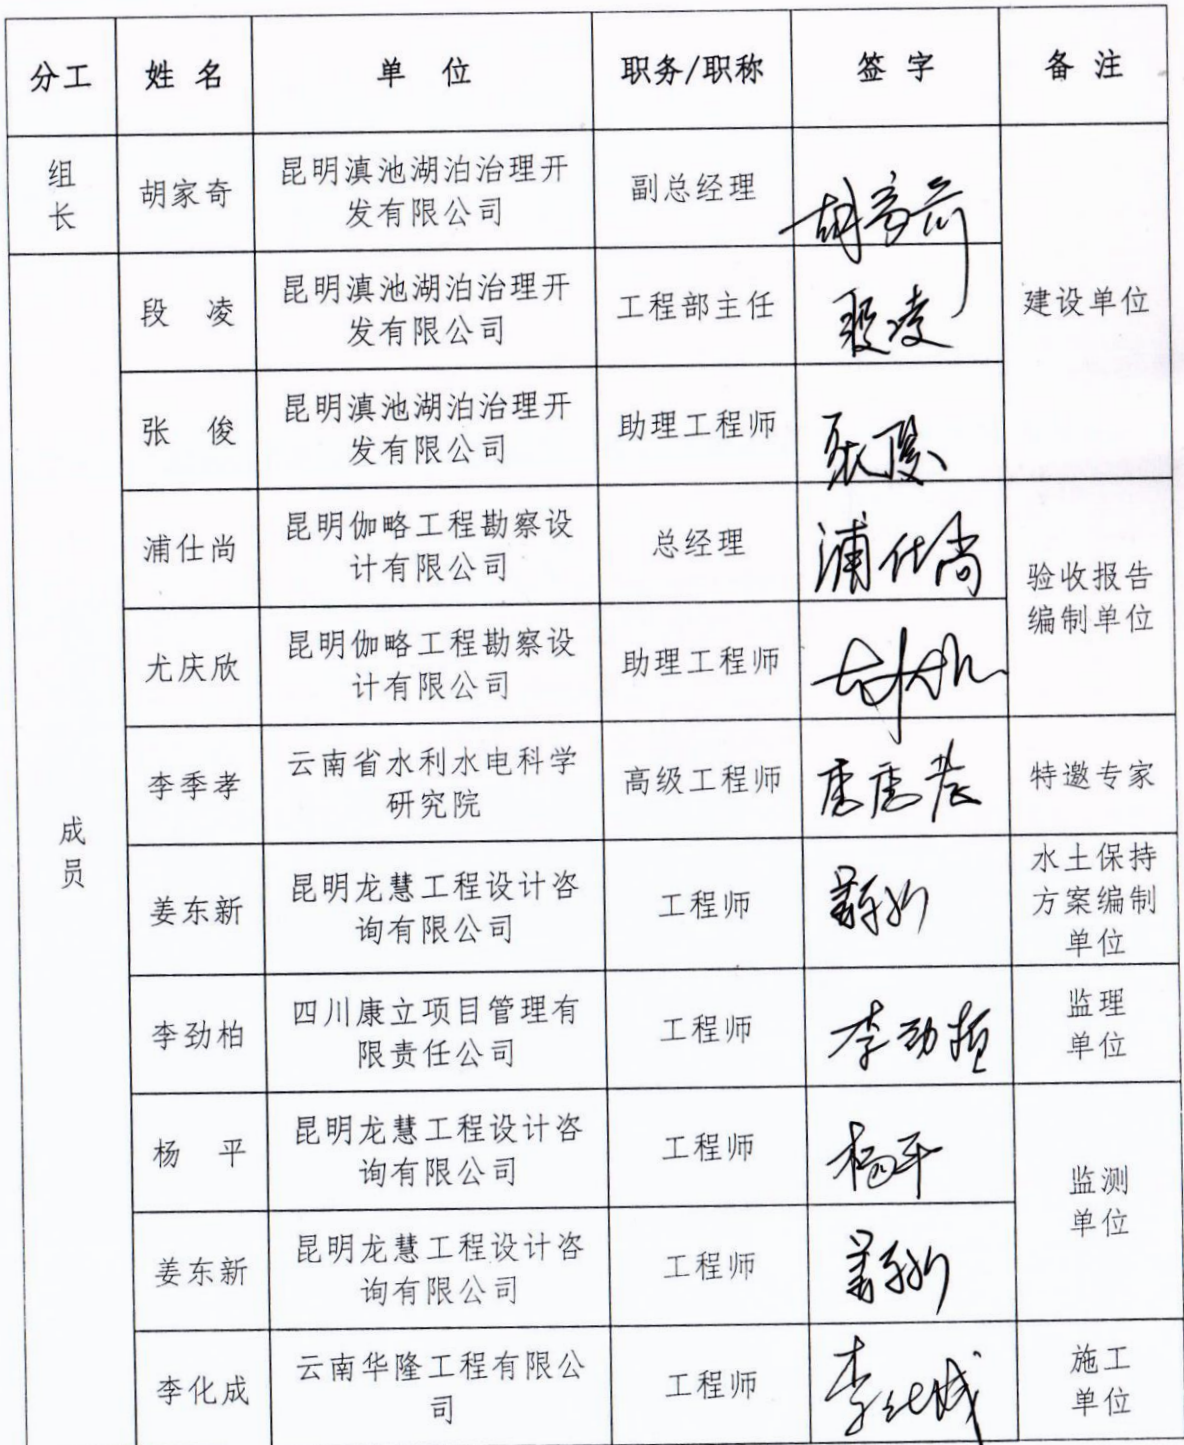 分工 姓 名 单 位 职务/职称 签 字 备 注
组
长
胡家奇
昆明滇池湖泊治理开
发有限公司
副总经理
胡家奇
建设单位
成
员
段 凌
昆明滇池湖泊治理开
发有限公司
工程部主任
段凌
张 俊
昆明滇池湖泊治理开
发有限公司
助理工程师
张俊
浦仕尚
昆明伽略工程勘察设
计有限公司
总经理
浦仕尚
验收报告
编制单位
尤庆欣
昆明伽略工程勘察设
计有限公司
助理工程师
李季孝
云南省水利水电科学
研究院
高级工程师
特邀专家
姜东新
昆明龙慧工程设计咨
询有限公司
工程师
姜东新
水土保持
方案编制
单位
李劲柏
四川康立项目管理有
限责任公司
工程师
李劲柏
监理
单位
杨 平
昆明龙慧工程设计咨
询有限公司
工程师
杨平
监测
单位
姜东新
昆明龙慧工程设计咨
询有限公司
工程师
姜东新
李化成
云南华隆工程有限公
司
工程师
李化成
施工
单位